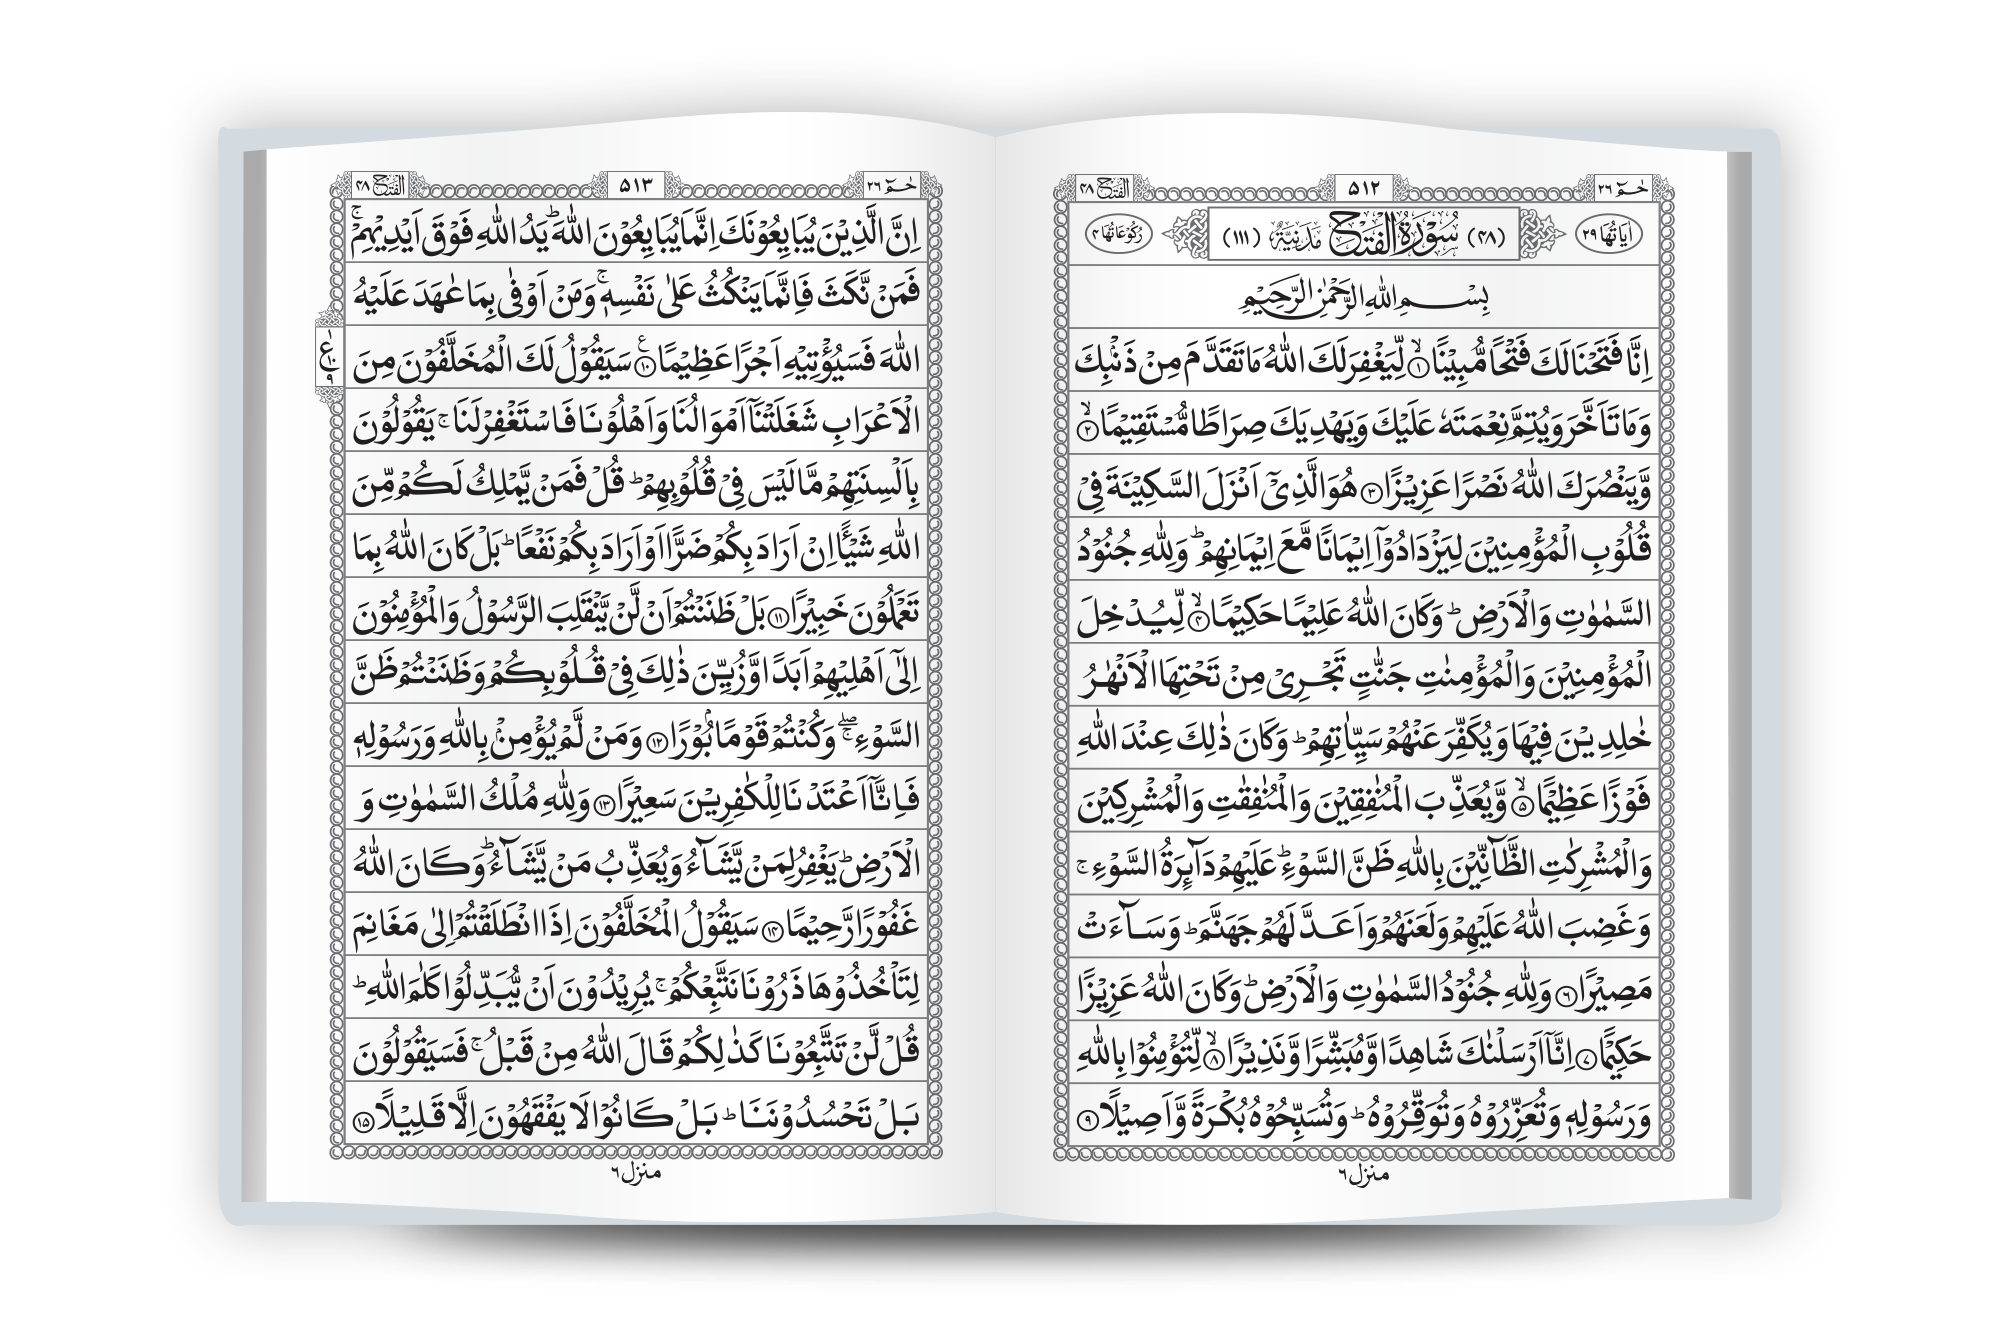 حٰمٓ ٢٦
٥١٢
الفتح ٤٨
اٰيَاتُهَا ٢٩
(٤٨) سُوْرَةُ الْفَتْحِ مَدَنِيَّةٌ (١١١)
رُكُوْعَاتُهَا ٤
بِسْمِ اللّٰهِ الرَّحْمٰنِ الرَّحِيْمِ
اِنَّا فَتَحْنَا لَكَ فَتْحًا مُّبِيْنًا ۙ﴿١﴾ لِّيَغْفِرَ لَكَ اللّٰهُ مَا تَقَدَّمَ مِنْ ذَنْۢبِكَ
وَمَا تَاَخَّرَ وَيُتِمَّ نِعْمَتَهٗ عَلَيْكَ وَيَهْدِيَكَ صِرَاطًا مُّسْتَقِيْمًا ۙ﴿٢﴾
وَّيَنْصُرَكَ اللّٰهُ نَصْرًا عَزِيْزًا ﴿٣﴾ هُوَ الَّذِيْۤ اَنْزَلَ السَّكِيْنَةَ فِيْ
قُلُوْبِ الْمُؤْمِنِيْنَ لِيَزْدَادُوْۤا اِيْمَانًا مَّعَ اِيْمَانِهِمْ ؕ وَلِلّٰهِ جُنُوْدُ
السَّمٰوٰتِ وَالْاَرْضِ ؕ وَكَانَ اللّٰهُ عَلِيْمًا حَكِيْمًا ۙ﴿٤﴾ لِّيُدْخِلَ
الْمُؤْمِنِيْنَ وَالْمُؤْمِنٰتِ جَنّٰتٍ تَجْرِيْ مِنْ تَحْتِهَا الْاَنْهٰرُ
خٰلِدِيْنَ فِيْهَا وَيُكَفِّرَ عَنْهُمْ سَيِّاٰتِهِمْ ؕ وَكَانَ ذٰلِكَ عِنْدَ اللّٰهِ
فَوْزًا عَظِيْمًا ۙ﴿٥﴾ وَّيُعَذِّبَ الْمُنٰفِقِيْنَ وَالْمُنٰفِقٰتِ وَالْمُشْرِكِيْنَ
وَالْمُشْرِكٰتِ الظَّآنِّيْنَ بِاللّٰهِ ظَنَّ السَّوْءِ ؕ عَلَيْهِمْ دَآئِرَةُ السَّوْءِ ۚ
وَغَضِبَ اللّٰهُ عَلَيْهِمْ وَلَعَنَهُمْ وَاَعَدَّ لَهُمْ جَهَنَّمَ ؕ وَسَآءَتْ
مَصِيْرًا ﴿٦﴾ وَلِلّٰهِ جُنُوْدُ السَّمٰوٰتِ وَالْاَرْضِ ؕ وَكَانَ اللّٰهُ عَزِيْزًا
حَكِيْمًا ﴿٧﴾ اِنَّاۤ اَرْسَلْنٰكَ شَاهِدًا وَّمُبَشِّرًا وَّنَذِيْرًا ۙ﴿٨﴾ لِّتُؤْمِنُوْا بِاللّٰهِ
وَرَسُوْلِهٖ وَتُعَزِّرُوْهُ وَتُوَقِّرُوْهُ ؕ وَتُسَبِّحُوْهُ بُكْرَةً وَّاَصِيْلًا ﴿٩﴾
منزل ٦
حٰمٓ ٢٦
٥١٣
الفتح ٤٨
اِنَّ الَّذِيْنَ يُبَايِعُوْنَكَ اِنَّمَا يُبَايِعُوْنَ اللّٰهَ ؕ يَدُ اللّٰهِ فَوْقَ اَيْدِيْهِمْ ۚ
فَمَنْ نَّكَثَ فَاِنَّمَا يَنْكُثُ عَلٰى نَفْسِهٖ ۚ وَمَنْ اَوْفٰى بِمَا عٰهَدَ عَلَيْهُ
اللّٰهَ فَسَيُؤْتِيْهِ اَجْرًا عَظِيْمًا ﴿١٠﴾ع سَيَقُوْلُ لَكَ الْمُخَلَّفُوْنَ مِنَ
ع ١٠ ٩
الْاَعْرَابِ شَغَلَتْنَاۤ اَمْوَالُنَا وَاَهْلُوْنَا فَاسْتَغْفِرْ لَنَا ۚ يَقُوْلُوْنَ
بِاَلْسِنَتِهِمْ مَّا لَيْسَ فِيْ قُلُوْبِهِمْ ؕ قُلْ فَمَنْ يَّمْلِكُ لَكُمْ مِّنَ
اللّٰهِ شَيْـًٔا اِنْ اَرَادَ بِكُمْ ضَرًّا اَوْ اَرَادَ بِكُمْ نَفْعًا ؕ بَلْ كَانَ اللّٰهُ بِمَا
تَعْمَلُوْنَ خَبِيْرًا ﴿١١﴾ بَلْ ظَنَنْتُمْ اَنْ لَّنْ يَّنْقَلِبَ الرَّسُوْلُ وَالْمُؤْمِنُوْنَ
اِلٰۤى اَهْلِيْهِمْ اَبَدًا وَّزُيِّنَ ذٰلِكَ فِيْ قُلُوْبِكُمْ وَظَنَنْتُمْ ظَنَّ
السَّوْءِ ۖۚ وَكُنْتُمْ قَوْمًۢا بُوْرًا ﴿١٢﴾ وَمَنْ لَّمْ يُؤْمِنْۢ بِاللّٰهِ وَرَسُوْلِهٖ
فَاِنَّاۤ اَعْتَدْنَا لِلْكٰفِرِيْنَ سَعِيْرًا ﴿١٣﴾ وَلِلّٰهِ مُلْكُ السَّمٰوٰتِ وَ
الْاَرْضِ ؕ يَغْفِرُ لِمَنْ يَّشَآءُ وَيُعَذِّبُ مَنْ يَّشَآءُ ؕ وَكَانَ اللّٰهُ
غَفُوْرًا رَّحِيْمًا ﴿١٤﴾ سَيَقُوْلُ الْمُخَلَّفُوْنَ اِذَا انْطَلَقْتُمْ اِلٰى مَغَانِمَ
لِتَاْخُذُوْهَا ذَرُوْنَا نَتَّبِعْكُمْ ۚ يُرِيْدُوْنَ اَنْ يُّبَدِّلُوْا كَلٰمَ اللّٰهِ ؕ
قُلْ لَّنْ تَتَّبِعُوْنَا كَذٰلِكُمْ قَالَ اللّٰهُ مِنْ قَبْلُ ۚ فَسَيَقُوْلُوْنَ
بَلْ تَحْسُدُوْنَنَا ؕ بَلْ كَانُوْا لَا يَفْقَهُوْنَ اِلَّا قَلِيْلًا ﴿١٥﴾
منزل ٦